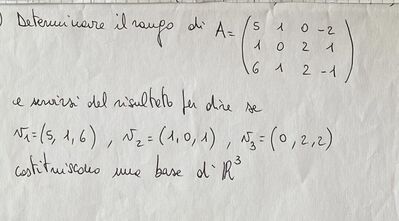 ) Determinare il rango di A = ( 5 1 0 -2
1 0 2 1
6 1 2 -1 )
e servirsi del risultato per dire se
v1=(5, 1, 6) , v2 = (1, 0, 1) , v3 = (0, 2, 2)
costituiscono una base di ℝ³